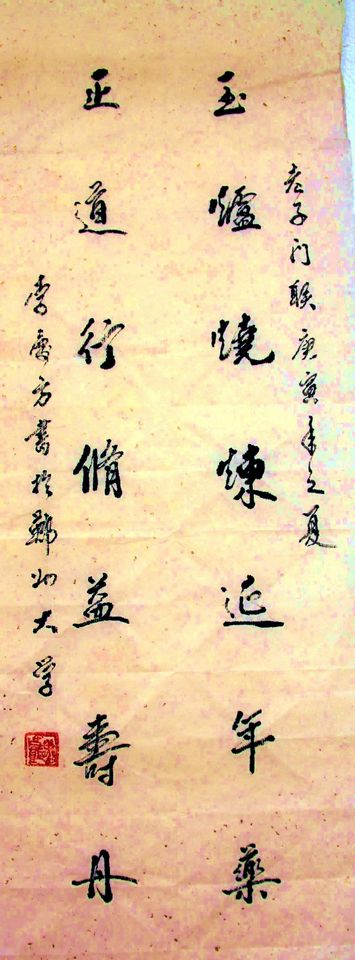 老子门联庚寅年之夏
玉爐燒煉延年藥
正道行脩益壽丹
李喬方書於鄭州大学